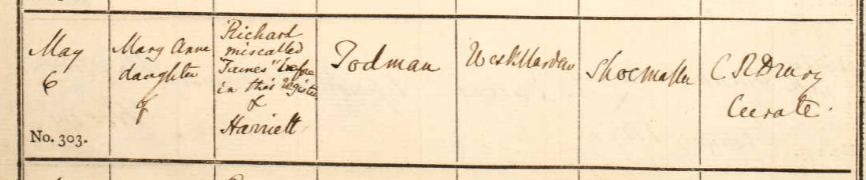 May
6
No. 303.
Mary Anne
daughter
of
Richard
miscalled
"James" before
in this Register
&
Harriett
Todman
West Marden
Shoemaker
C R Drury
Curate.